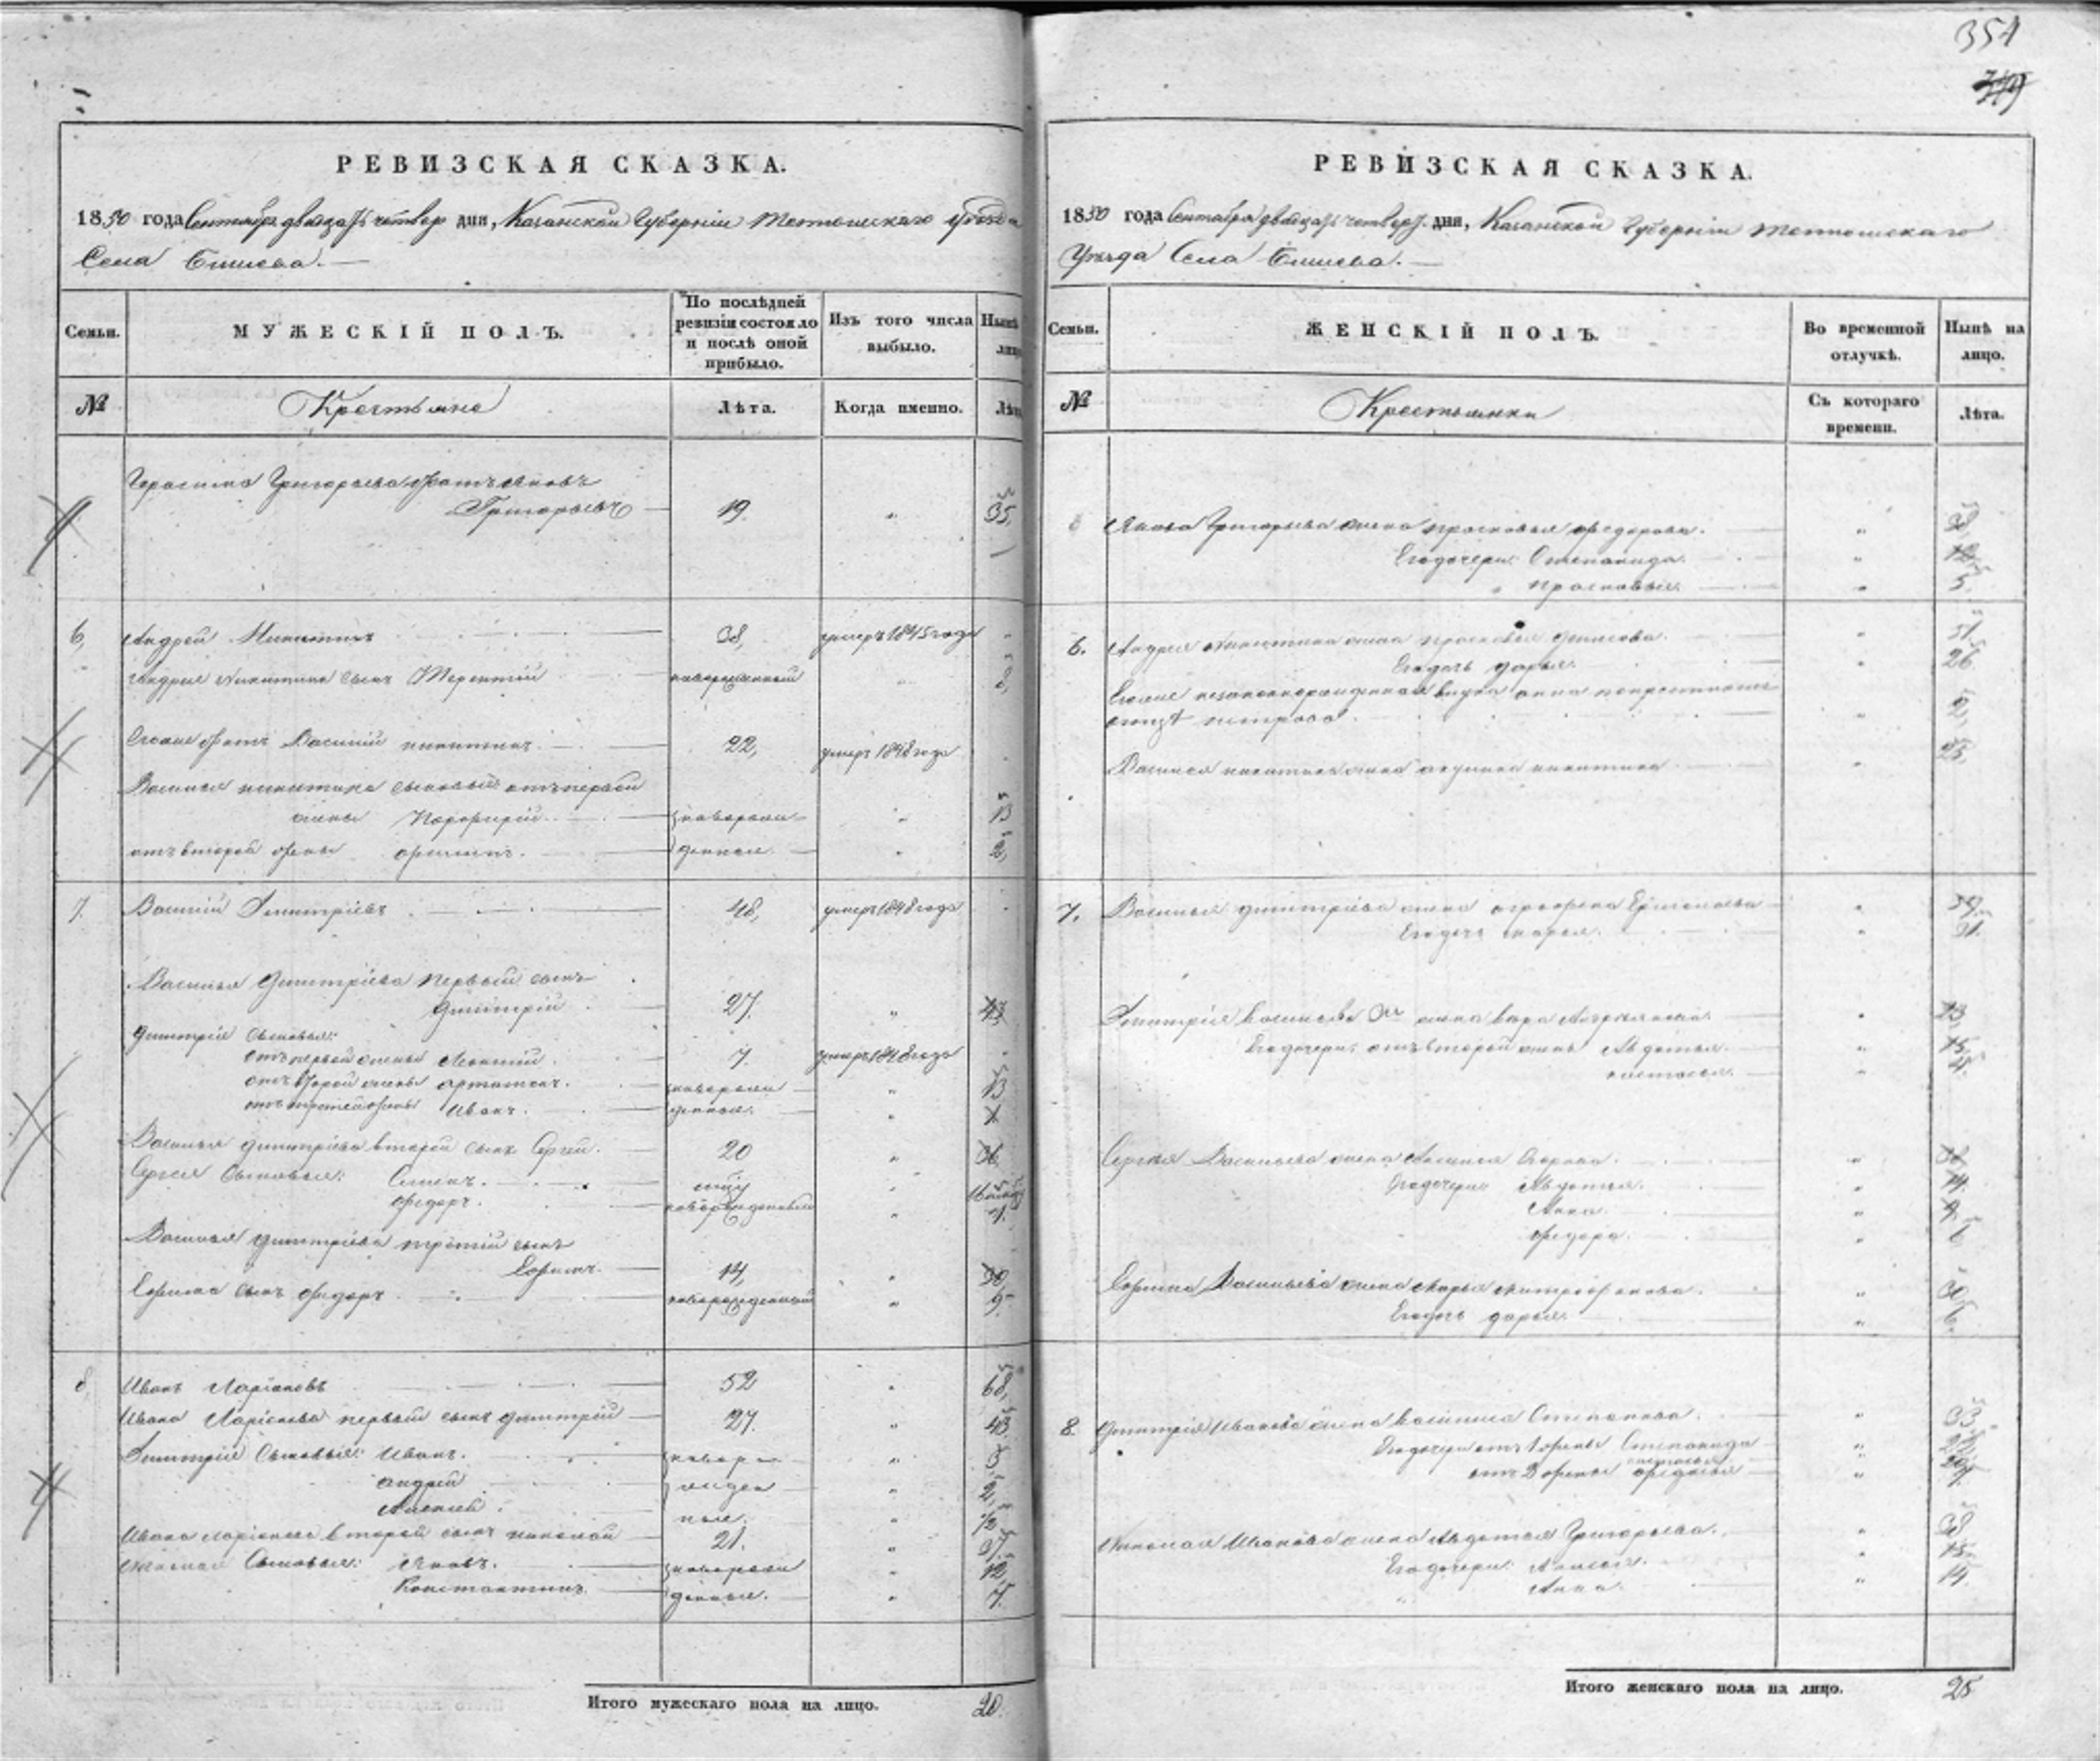 354
319
РЕВИЗСКАЯ СКАЗКА.
1850 года Сентября двадцать четвер дня, Казанской Губерніи Тетюшскаго уѣзда
Села
СЕМЬИ.
МУЖЕСКІЙ ПОЛЪ.
По послѣдней ревизіи состояло и послѣ оной прибыло.
Изъ того числа выбыло.
Нынѣ лицо
№
Крестьяне
Лѣта.
Когда именно.
Лѣта
Герасима Григорьева братъ Яковъ
Григорьевъ 19. " 35,
6, Андрей Никитинъ 38, умеръ 1845 года
Андрея Никитина сынъ Терентий новорожденный
Его же братъ Василий никитинъ. 22, умеръ 1848 года
Василья никитина сыновья: отъ первой
жены Порфирий. новорож- " 13
отъ второй жены денные. " 2,
7. Василий Дмитріевъ 48, умеръ 1848 года
Василья Дмитріева первый сынъ
Дмитрій 27. " 43
Дмитрія сыновья:
отъ первой жены 7. умеръ 1848 года
отъ второй жены артамонъ. новорож " 13
отъ третей жены Иванъ. денные. "
Василья дмитріева второй сынъ Сергей. 20 " 36
Сергея сыновья: Семенъ. "
федоръ. новорожденный " 7.
Василья дмитріева третій сынъ
Ефимъ. 14, " 30
Ефима сынъ федоръ новорожденный " 9
8, Иванъ Ларіоновъ 52 " 68,
Ивана Ларіонова первый сынъ дмитрій 27. " 43
Дмитрія сыновья: Иванъ. новоро-
андрей жден " 2,
Алексей ные. " 1/2
Ивана Ларіонова второй сынъ николай 21. " 37
Николая сыновья: Яковъ. новорож " 12
Константинъ денные. " 7.
Итого мужескаго пола на лицо. 20.
РЕВИЗСКАЯ СКАЗКА.
1850 года Сентября двадцать четверт. дня, Казанской Губерніи Тетюшскаго
Уѣзда Села
Семьи.
ЖЕНСКІЙ ПОЛЪ.
Во временной отлучкѣ.
Нынѣ на лицо.
№
Крестьянки
Съ котораго времени.
Лѣта.
Якова Григорьева жена прасковья федорова. " 38,
Его дочери: Степанида. " 12,
" прасковья. " 5.
6. Андрея Никитина жена прасковья денисова. " 51.
Его дочь дарья. " 26.
Его же незаконнорожденная внука анна
отцу петрова. " 2,
Василья никитина жена акулина никитина " 25,
7. Василья дмитріева жена Ермолаева " 59
Его дочь марья. " 21.
Дмитрія васильева 3й жена " 33
Его дочери: отъ второй жены Авдотья. " 15.
настасья. "
Сергея Васильева жена Егорова. "
Его дочери: Авдотья. " 14.
Анна. "
федора. "
Ефима Васильева жена марья митрофанова. " 30
Его дочь дарья. " 6.
8. Дмитрія Иванова жена Степанова. " 33
Его дочери отъ 1 жены Степанида "
отъ 2 жены "
Николая Иванова жена Авдотья Григорьева. " 38
Его дочери: " 15.
Анна. " 14.
Итого женскаго пола на лицо. 25